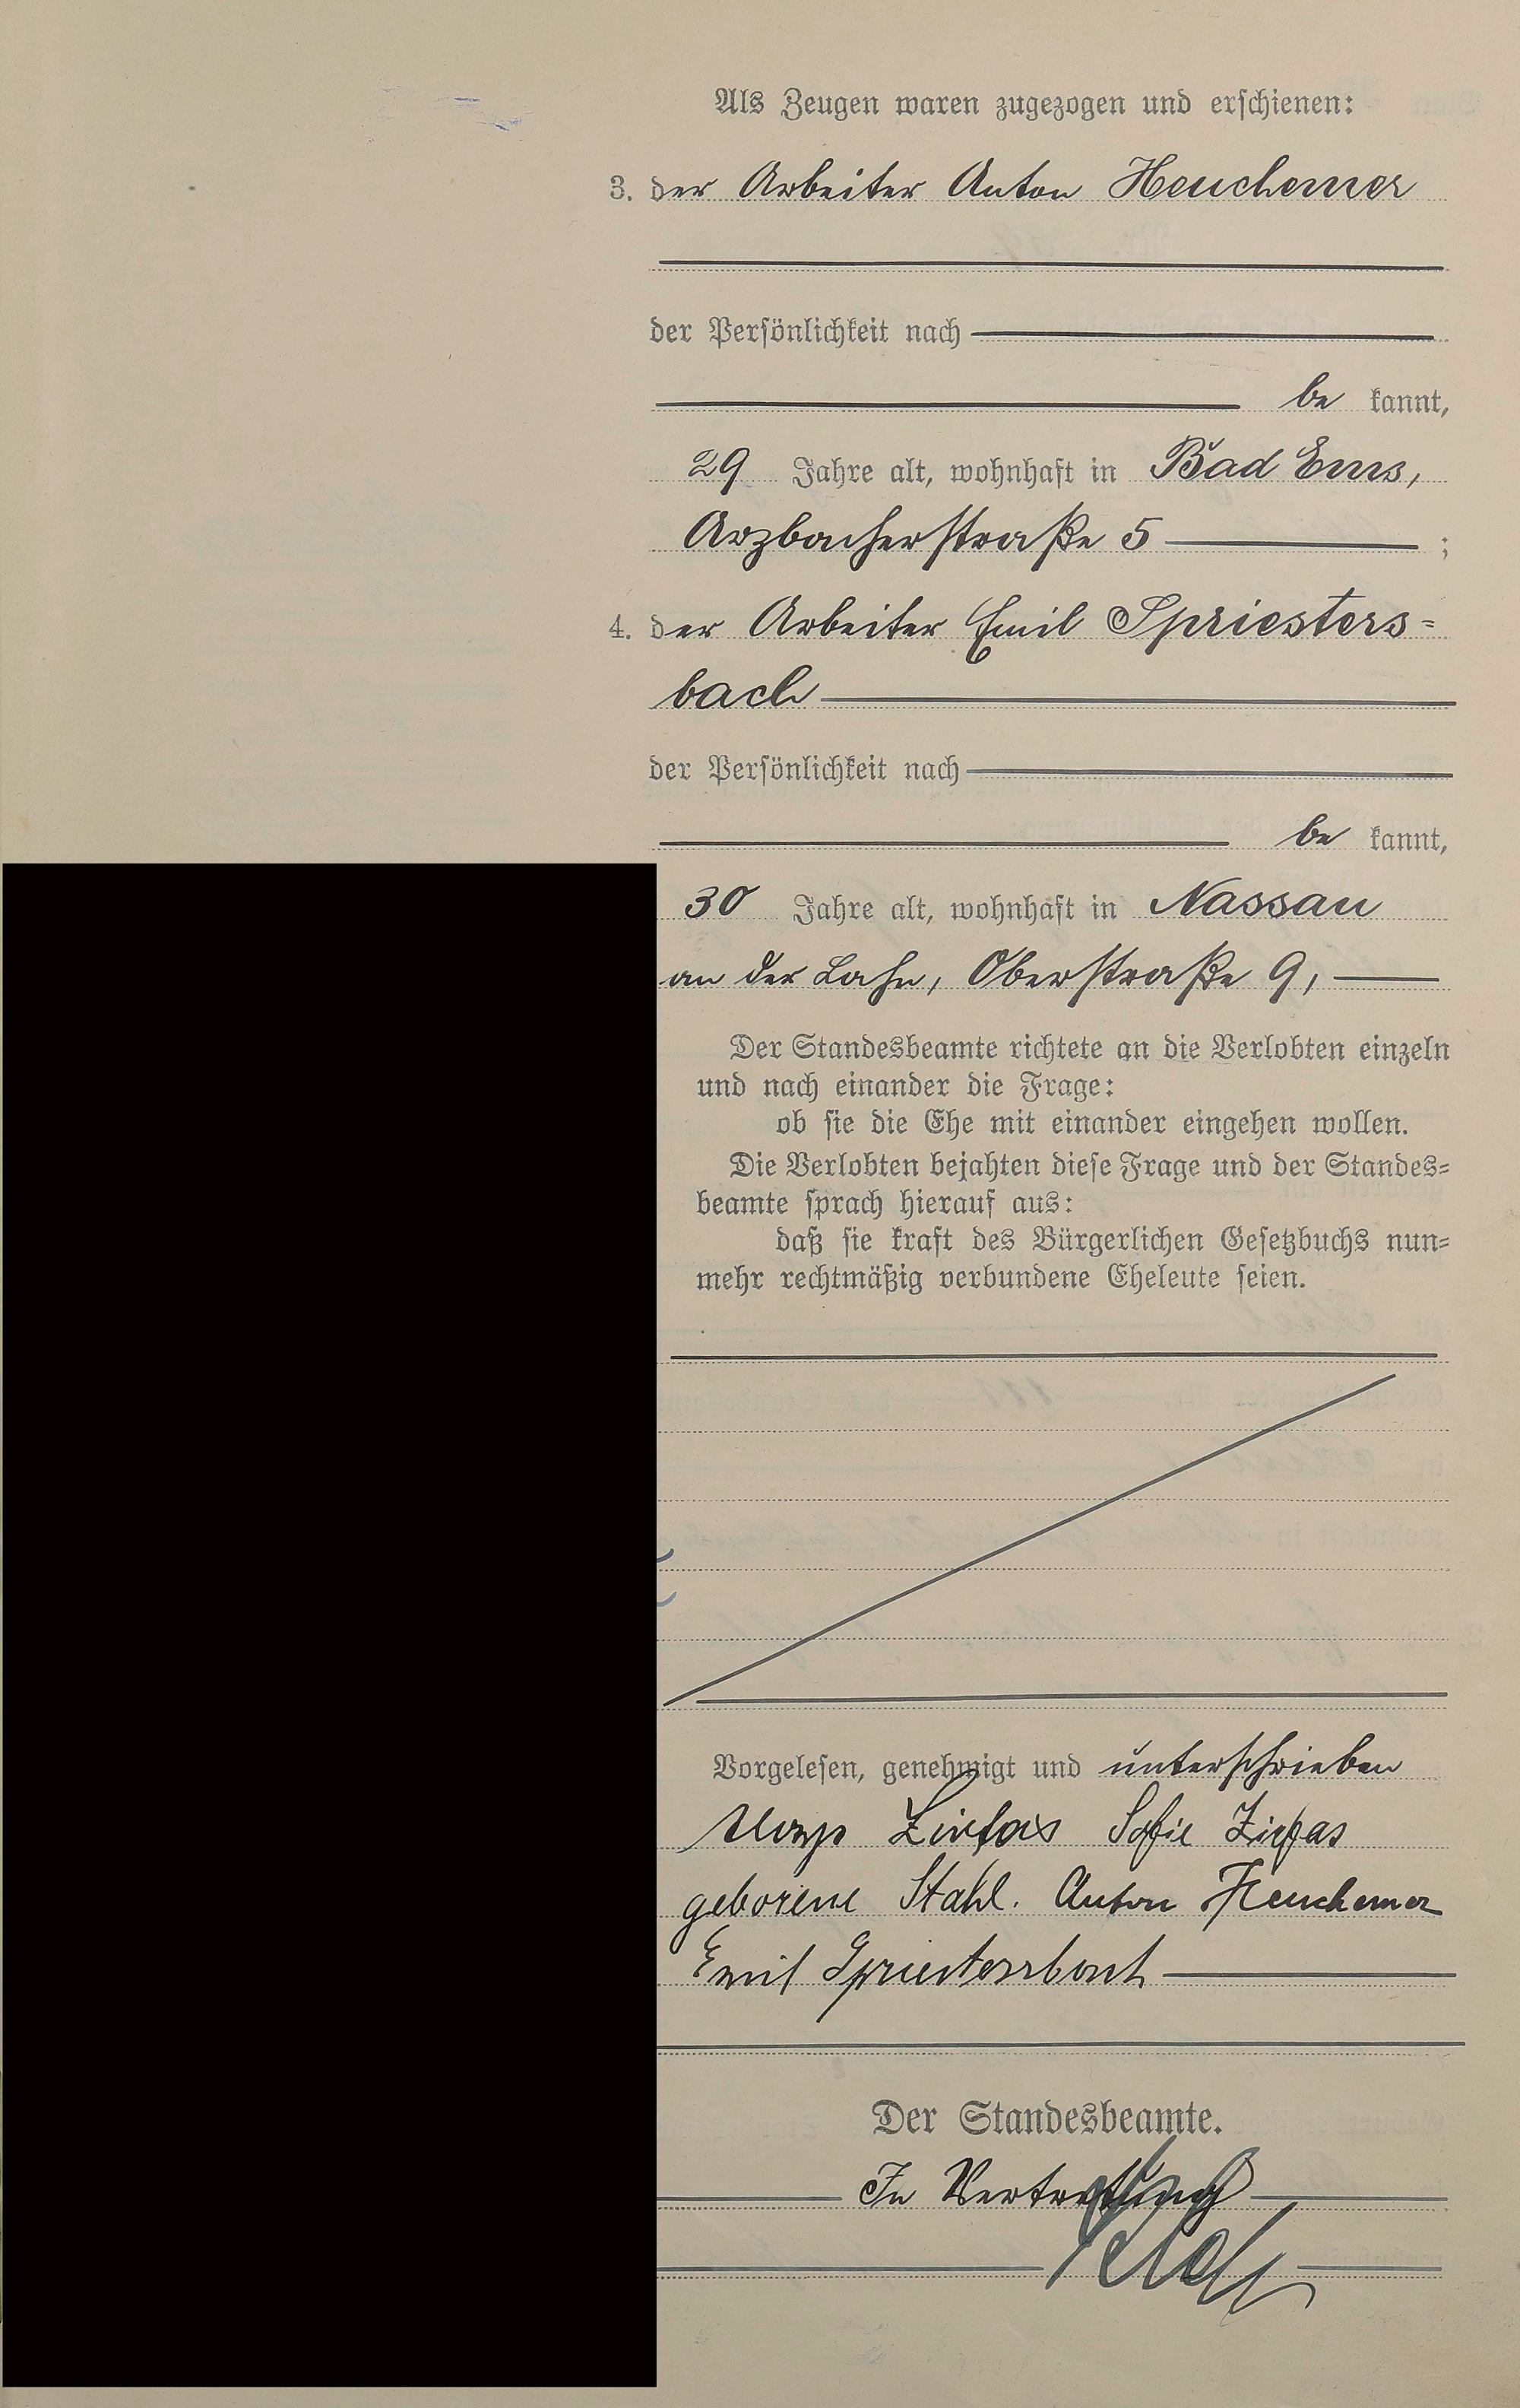 Als Zeugen waren zugezogen und erschienen:
3. der Arbeiter Anton Heuchemer
der Persönlichkeit nach
be kannt,
29 Jahre alt, wohnhaft in Bad Ems,
Arzbacherstraße 5 ;
4. der Arbeiter Emil Spriesters=
bach
der Persönlichkeit nach
be kannt,
30 Jahre alt, wohnhaft in Nassau
an der Lahn, Oberstraße 9,
Der Standesbeamte richtete an die Verlobten einzeln
und nach einander die Frage:
ob sie die Ehe mit einander eingehen wollen.
Die Verlobten bejahten diese Frage und der Standes=
beamte sprach hierauf aus:
daß sie kraft des Bürgerlichen Gesetzbuchs nun=
mehr rechtmäßig verbundene Eheleute seien.
Vorgelesen, genehmigt und unterschrieben
Zirfas Sofie Zirfas
geborene Stahl. Anton Heuchemer
Emil Spriestersbach
Der Standesbeamte.
In Vertretung